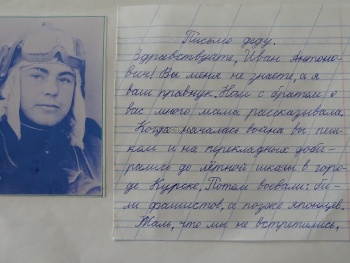 Письмо деду.
Здравствуйте, Иван Антоно-
вич! Вы меня не знаете, а я
ваш правнук. Нам с братом о
вас много мама рассказывала.
Когда началась война вы пеш-
ком и на перекладных доби-
рались до лётной школы в горо-
де Курске. Потом воевали: би-
ли фашистов, а позже японцев.
Жаль, что мы не встретились,